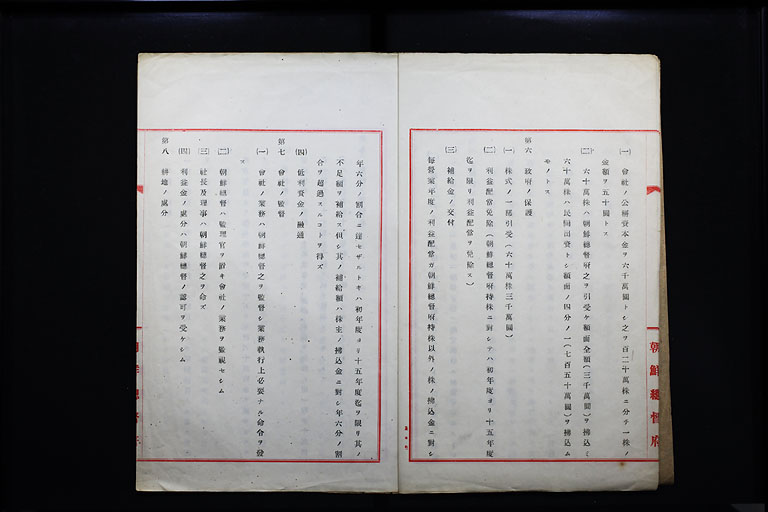 (一) 會社ノ公稱資本金ヲ六千萬圓トシ之ヲ百二十萬株ニ分チ一株ノ
金額ヲ五十圓トス
(二) 六十萬株ハ朝鮮總督府之ヲ引受ケ額面全額(三千萬圓)ヲ拂込ミ
六十萬株ハ民間出資トシ額面ノ四分ノ一(七百五十萬圓)ヲ拂込ム
モノトス
第六 政府ノ保護
(一) 株式ノ一部引受(六十萬株三千萬圓)
(二) 利益配當免除(朝鮮總督府持株ニ對シテハ初年度ヨリ十五年度
迄ヲ限リ利益配當ヲ免除ス)
(三) 補給金ノ交付
每營業年度ノ利益配當ガ朝鮮總督府持株以外ノ株ノ拂込金ニ對シ
朝鮮總督府
年六分ノ割合ニ達セザルトキハ初年度ヨリ十五年度迄ヲ限リ其ノ
不足額ヲ補給ス但シ其ノ補給額ハ株主ノ拂込金ニ對シ年六分ノ割
合ヲ超過スルコトヲ得ズ
(四) 低利資金ノ融通
第七 會社ノ監督
(一) 會社ノ業務ハ朝鮮總督之ヲ監督シ業務執行上必要ナル命令ヲ發
ス
(二) 朝鮮總督ハ監理官ヲ置キ會社ノ業務ヲ監視セシム
(三) 社長及理事ハ朝鮮總督之ヲ命ズ
(四) 利益金ノ處分ハ朝鮮總督ノ認可ヲ受ケシム
第八 耕地ノ處分
朝鮮總督府